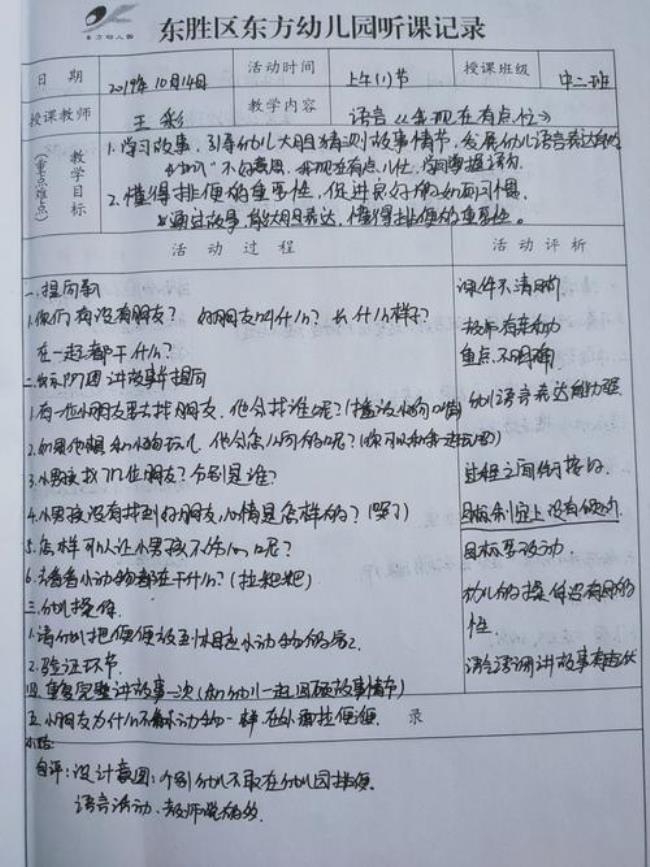 东方幼儿园
东胜区东方幼儿园听课记录
日期 2019年10月14日 活动时间 上午(1)节 授课班级 中二班
授课教师 王彩 教学内容 语言《我现在有点忙》
教学目标(重点难点)
1.学习故事,引导幼儿大胆猜测故事情节,发展幼儿语言表达能力
"不好意思,我现在有点儿忙,学习掌握语句
2.懂得排便的重要性,促进良好的如厕习惯.
通过故事,能大胆表达,懂得排便的重要性。
活动过程 活动评析
一.提问
1.你们有没有朋友? 好朋友叫什么? 长什么样子?
在一起都干什么?
二.出示PPT图讲故事并提问
1.有一位小朋友要去找朋友,他会找谁呢?
2.如果他想和小狗玩儿,他会怎么问的呢?(你可以和我一起玩吗)
3.小男孩找了几位朋友?分别是谁?
4.小男孩没有找到好朋友,心情是怎样的?(哭了)
5.怎样可以让小男孩不伤心呢?
6.去看看小动物都在干什么?(拉粑粑)
三.幼儿操作.
1.请幼儿把便便放到相应小动物的
2.验证环节.
四.重复完整讲故事一次(和幼儿一起回顾故事情节)
五.小朋友为什么不像小动物一样在外面拉便便. 录
小结:
自评:设计意图:个别幼儿不敢在幼儿园排便.
语言活动.教师说的多.
课件不清晰
教师有亲和力
重点不明确
幼儿语言表达能力强.
过程之间衔接好.
目标制定上没有
目标要改动.
幼儿的操作没有目的
性
语言语调讲故事有起伏